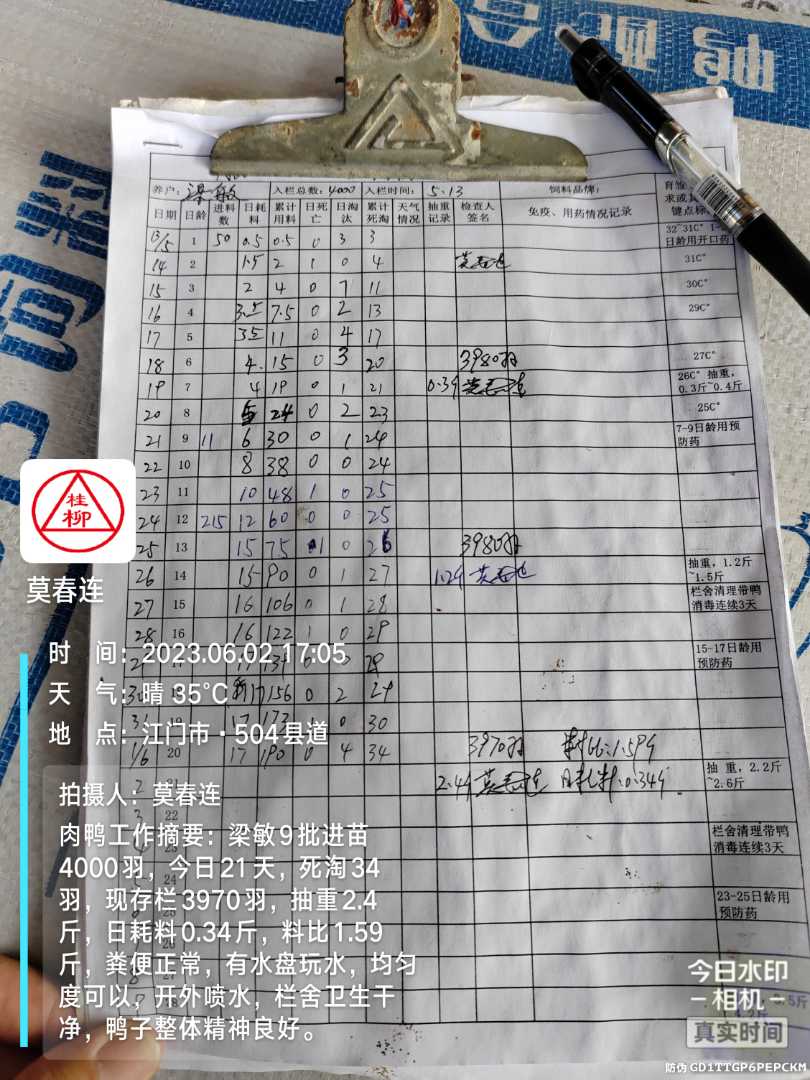 养户：梁敏 入栏总数：4000 入栏时间：5.13 饲料品牌：
日期 日龄 进料数 日耗料 累计用料 日死亡 日淘汰 累计死淘 天气情况 抽重记录 检查人签名 免疫、用药情况记录
13/5 1 50 0.5 0.5 0 3 3 32~31C° 1-
日龄用开口药
14 2 1.5 2 1 0 4 莫春连 31C°
15 3 2 4 0 7 11 30C°
16 4 3.5 7.5 0 2 13 29C°
17 5 3.5 11 0 4 17
18 6 4 15 0 3 20 3980羽 27C°
19 7 4 19 0 1 21 0.39 莫春连 26C° 抽重，
0.3斤~0.4斤
20 8 5 24 0 2 23 25C°
21 9 11 6 30 0 1 24 7-9日龄用预
防药
22 10 8 38 0 0 24
23 11 10 48 1 0 25
24 12 215 12 60 0 0 25
25 13 15 75 1 0 26 3980羽
26 14 15 90 0 1 27 莫春连 抽重，1.2斤
~1.5斤
27 15 16 106 0 1 28 栏舍清理带鸭
消毒连续3天
28 16 16 122 1 0 29
15-17日龄用
预防药
17 156 0 2
17 0 30
1/6 20 17 190 0 4 34 3970羽 料比:1.59斤
2 21 2.4斤 莫春连 日耗料:0.34斤 抽重，2.2斤
~2.6斤
22
栏舍清理带鸭
消毒连续3天
24
23-25日龄用
预防药
桂柳
莫春连
时 间：2023.06.02 17:05
天 气：晴 35℃
地 点：江门市·504县道
拍摄人：莫春连
肉鸭工作摘要：梁敏9批进苗
4000羽，今日21天，死淘34
羽，现存栏3970羽，抽重2.4
斤，日耗料0.34斤，料比1.59
斤，粪便正常，有水盘玩水，均匀
度可以，开外喷水，栏舍卫生干
净，鸭子整体精神良好。
今日水印
相机
真实时间
防伪 GD1TTGP6PEPCKM